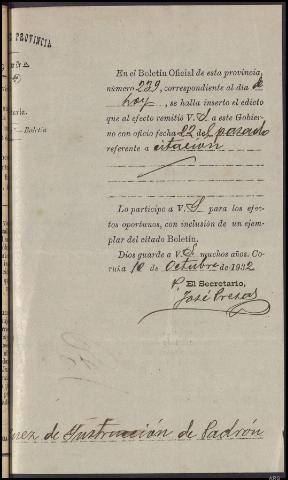 PROVINCIA
Boletín
En el Boletín Oficial de esta provincia,
número 239, correspondiente al día de
hoy, se halla inserto el edicto
que al efecto remitió V. S. a este Gobier-
no con oficio fecha 22 del pasado
referente a citación
Lo participo a V. S. para los efec-
tos oportunos, con inclusión de un ejem-
plar del citado Boletín.
Dios guarde a V. S. muchos años. Co-
ruña 10 de Octubre de 1932
El Secretario,
José Presas
Juez de Instrucción de Padrón